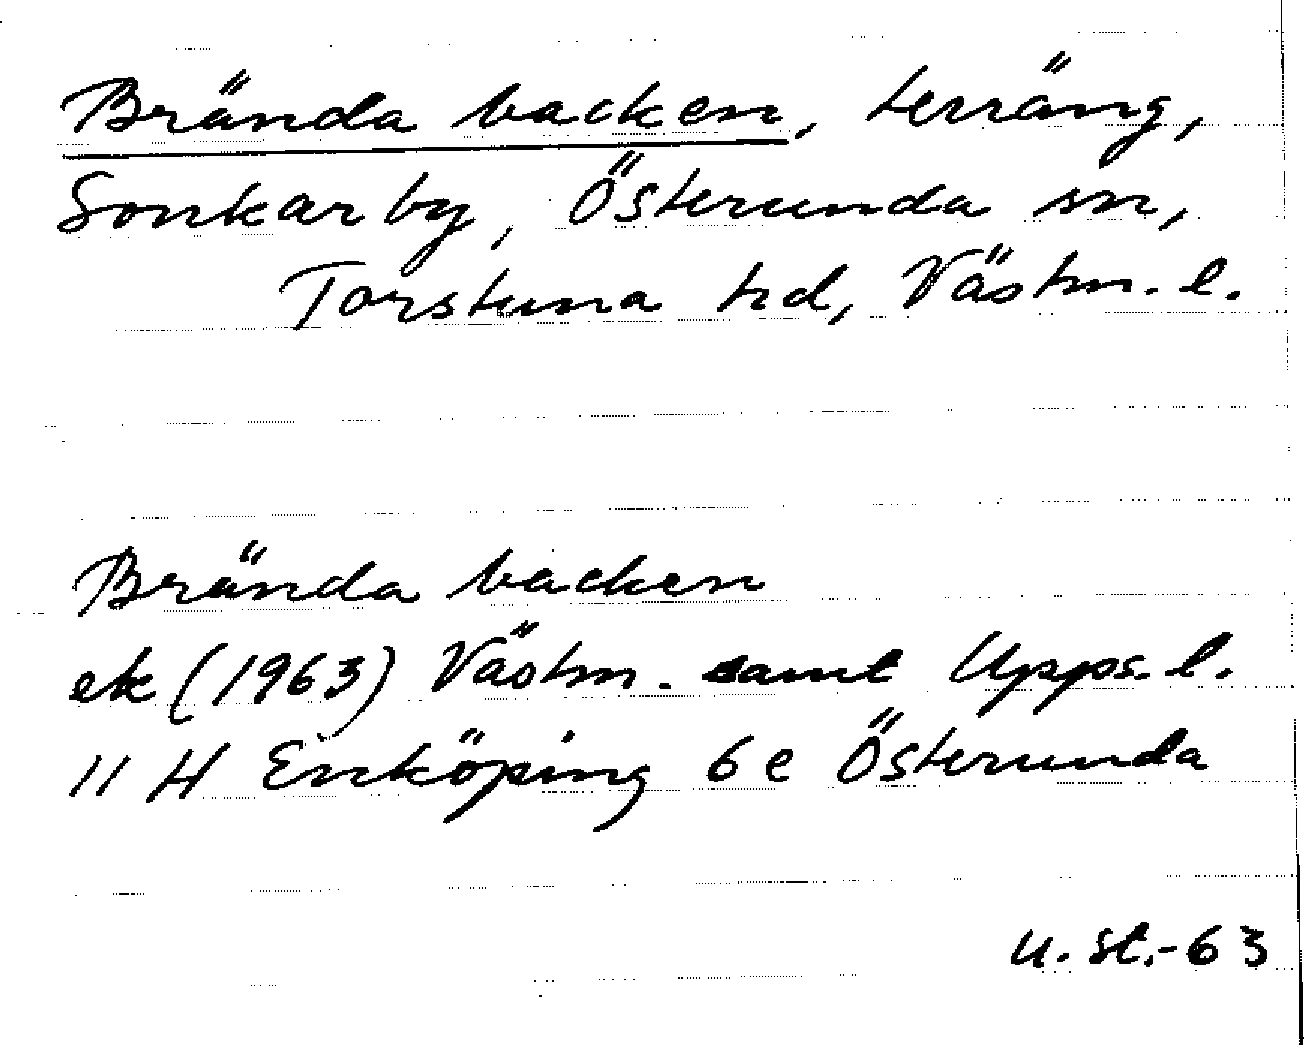 Brända backen, terräng,
Sonkarby, Österunda sn,
Torstuna hd, Västm. l.
Brända backen
ek (1963) Västm. samt Upps. l.
11 H Enköping 6e Österunda
u. st.-63